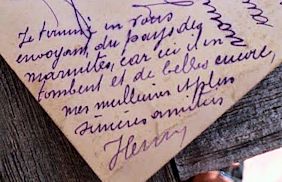 Je termine en vous
envoyant, du pays des
marmites, car ici il en
tombent et de belles encore,
mes meilleures et plus
sincères amitiés
Henry